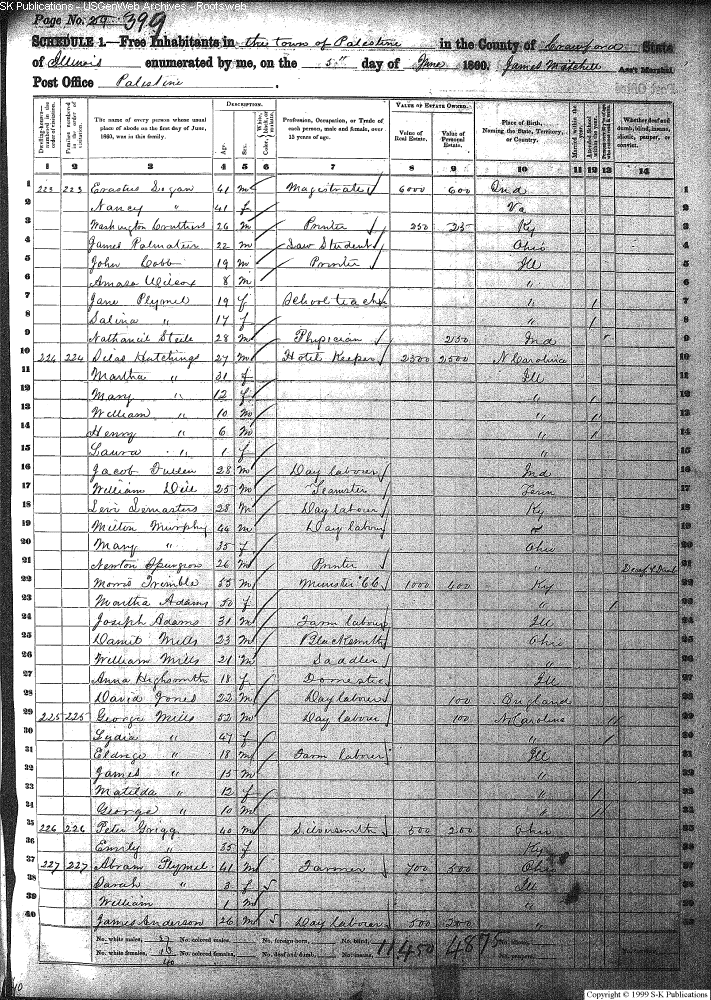 SK Publications - USGenWeb Archives - Rootsweb
Page No. 29 399
SCHEDULE 1.—Free Inhabitants in the town of Palestine in the County of Crawford State
of Illinois enumerated by me, on the 5" day of June 1860. James Mitchell Ass't Marshal
Post Office Palestine
Dwelling-houses—numbered in the order of visitation. Families numbered in the order of visitation. The name of every person whose usual place of abode on the first day of June, 1860, was in this family. DESCRIPTION. Age. Sex. Color, White, black, or mulatto. Profession, Occupation, or Trade of each person, male and female, over 15 years of age. VALUE OF ESTATE OWNED. Value of Real Estate. Value of Personal Estate. Place of Birth, Naming the State, Territory, or Country. Married within the year. Attended School within the year. Whether deaf and dumb, blind, insane, idiotic, pauper, or convict.
1 2 3 4 5 6 7 8 9 10 11 12 13 14
1 223 223 Erastus Logan 41 m Magistrate 6000 600 Ind 1
2 Nancy " 41 f Va 2
3 Washington Cruthers 26 m Printer 250 25 Ky 3
4 James Palmateer 22 m Law Student Ohio 4
5 John Cobb 19 m Printer Ill 5
6 Amasa Wilcox 8 m " 6
7 Jane Plymel 19 f School teacher " / 7
8 Salina " 17 f " / 8
9 Nathaniel Steele 28 m Physician 250 Ind 9
10 224 224 Silas Hutchings 27 m Hotel Keeper 2500 2500 N Carolina 10
11 Martha " 31 f Ill 11
12 Mary " 12 f " / 12
13 William " 10 m " / 13
14 Henry " 6 m " / 14
15 Laura " 1 f " 15
16 Jacob Fullen 28 m Day laborer Ind 16
17 William Dill 25 m Teamster Tenn 17
18 Levi Lemasters 28 m Day labour Ky 18
19 Milton Murphy 44 m Day labour " 19
20 Mary " 35 f Ohio 20
21 Newton Spurgeon 26 m Printer " 21
22 Morris Trimble 55 m Minister 1000 600 Ky 22
23 Martha Adams 50 f " / 23
24 Joseph Adams 31 m Farm labour Ill 24
25 Daniel Mills 23 m Blacksmith Ohio 25
26 William Mills 21 m Saddler " 26
27 Anna Highsmith 18 f Domestic Ill 27
28 David Jones 22 m Day labour 100 England 28
29 225 225 George Mills 52 m Day labour 100 N Carolina 29
30 Lydia " 47 f " / 30
31 Eldrige " 18 m Farm laborer Ill 31
32 James " 15 m " 32
33 Matilda " 12 f " / 33
34 George " 10 m " / 34
35 226 226 Peter Grigg 40 m Silversmith 500 200 Ohio 35
36 Emily " 35 f Ky 36
37 227 227 Abram Plymel 41 m Farmer 700 500 Ohio 37
38 Sarah " 3 f Ill 38
39 William 1 m " 39
40 James Anderson 26 m Day laborer 500 200 " 40
No. white males, 27 No. colored males, No. foreign born, No. blind, 11450 4875
No. white females, 13 No. colored females, No. deaf and dumb, No. insane,
40
Copyright © 1999 S-K Publications